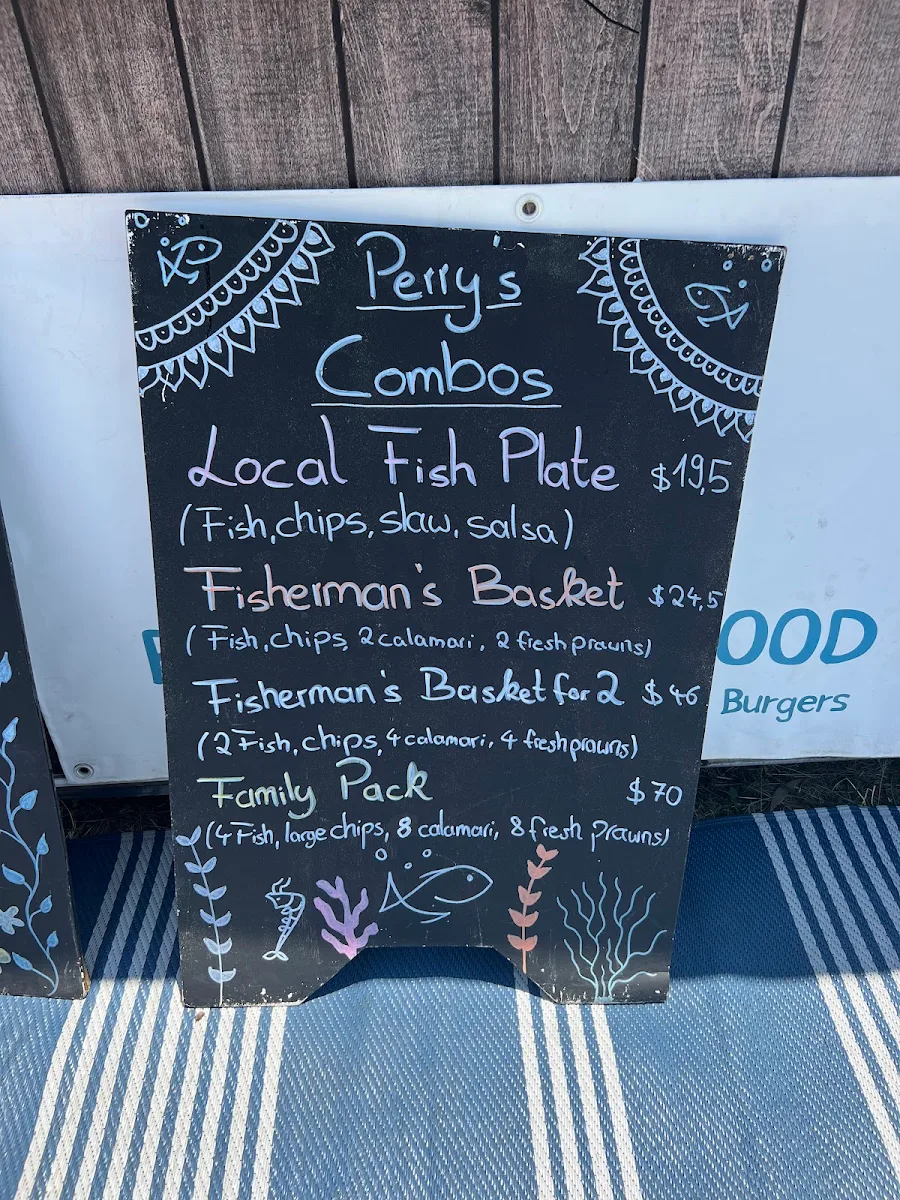 Perry's
Combos
Local Fish Plate $19,5
(Fish, chips, slaw, salsa)
Fisherman's Basket $24,5
(Fish, chips, 2 calamari, 2 fresh prawns)
Fisherman's Basket for 2 $46
(2 Fish, chips, 4 calamari, 4 fresh prawns)
Family Pack $70
(4 Fish, large chips, 8 calamari, 8 fresh prawns)
OOD
Burgers